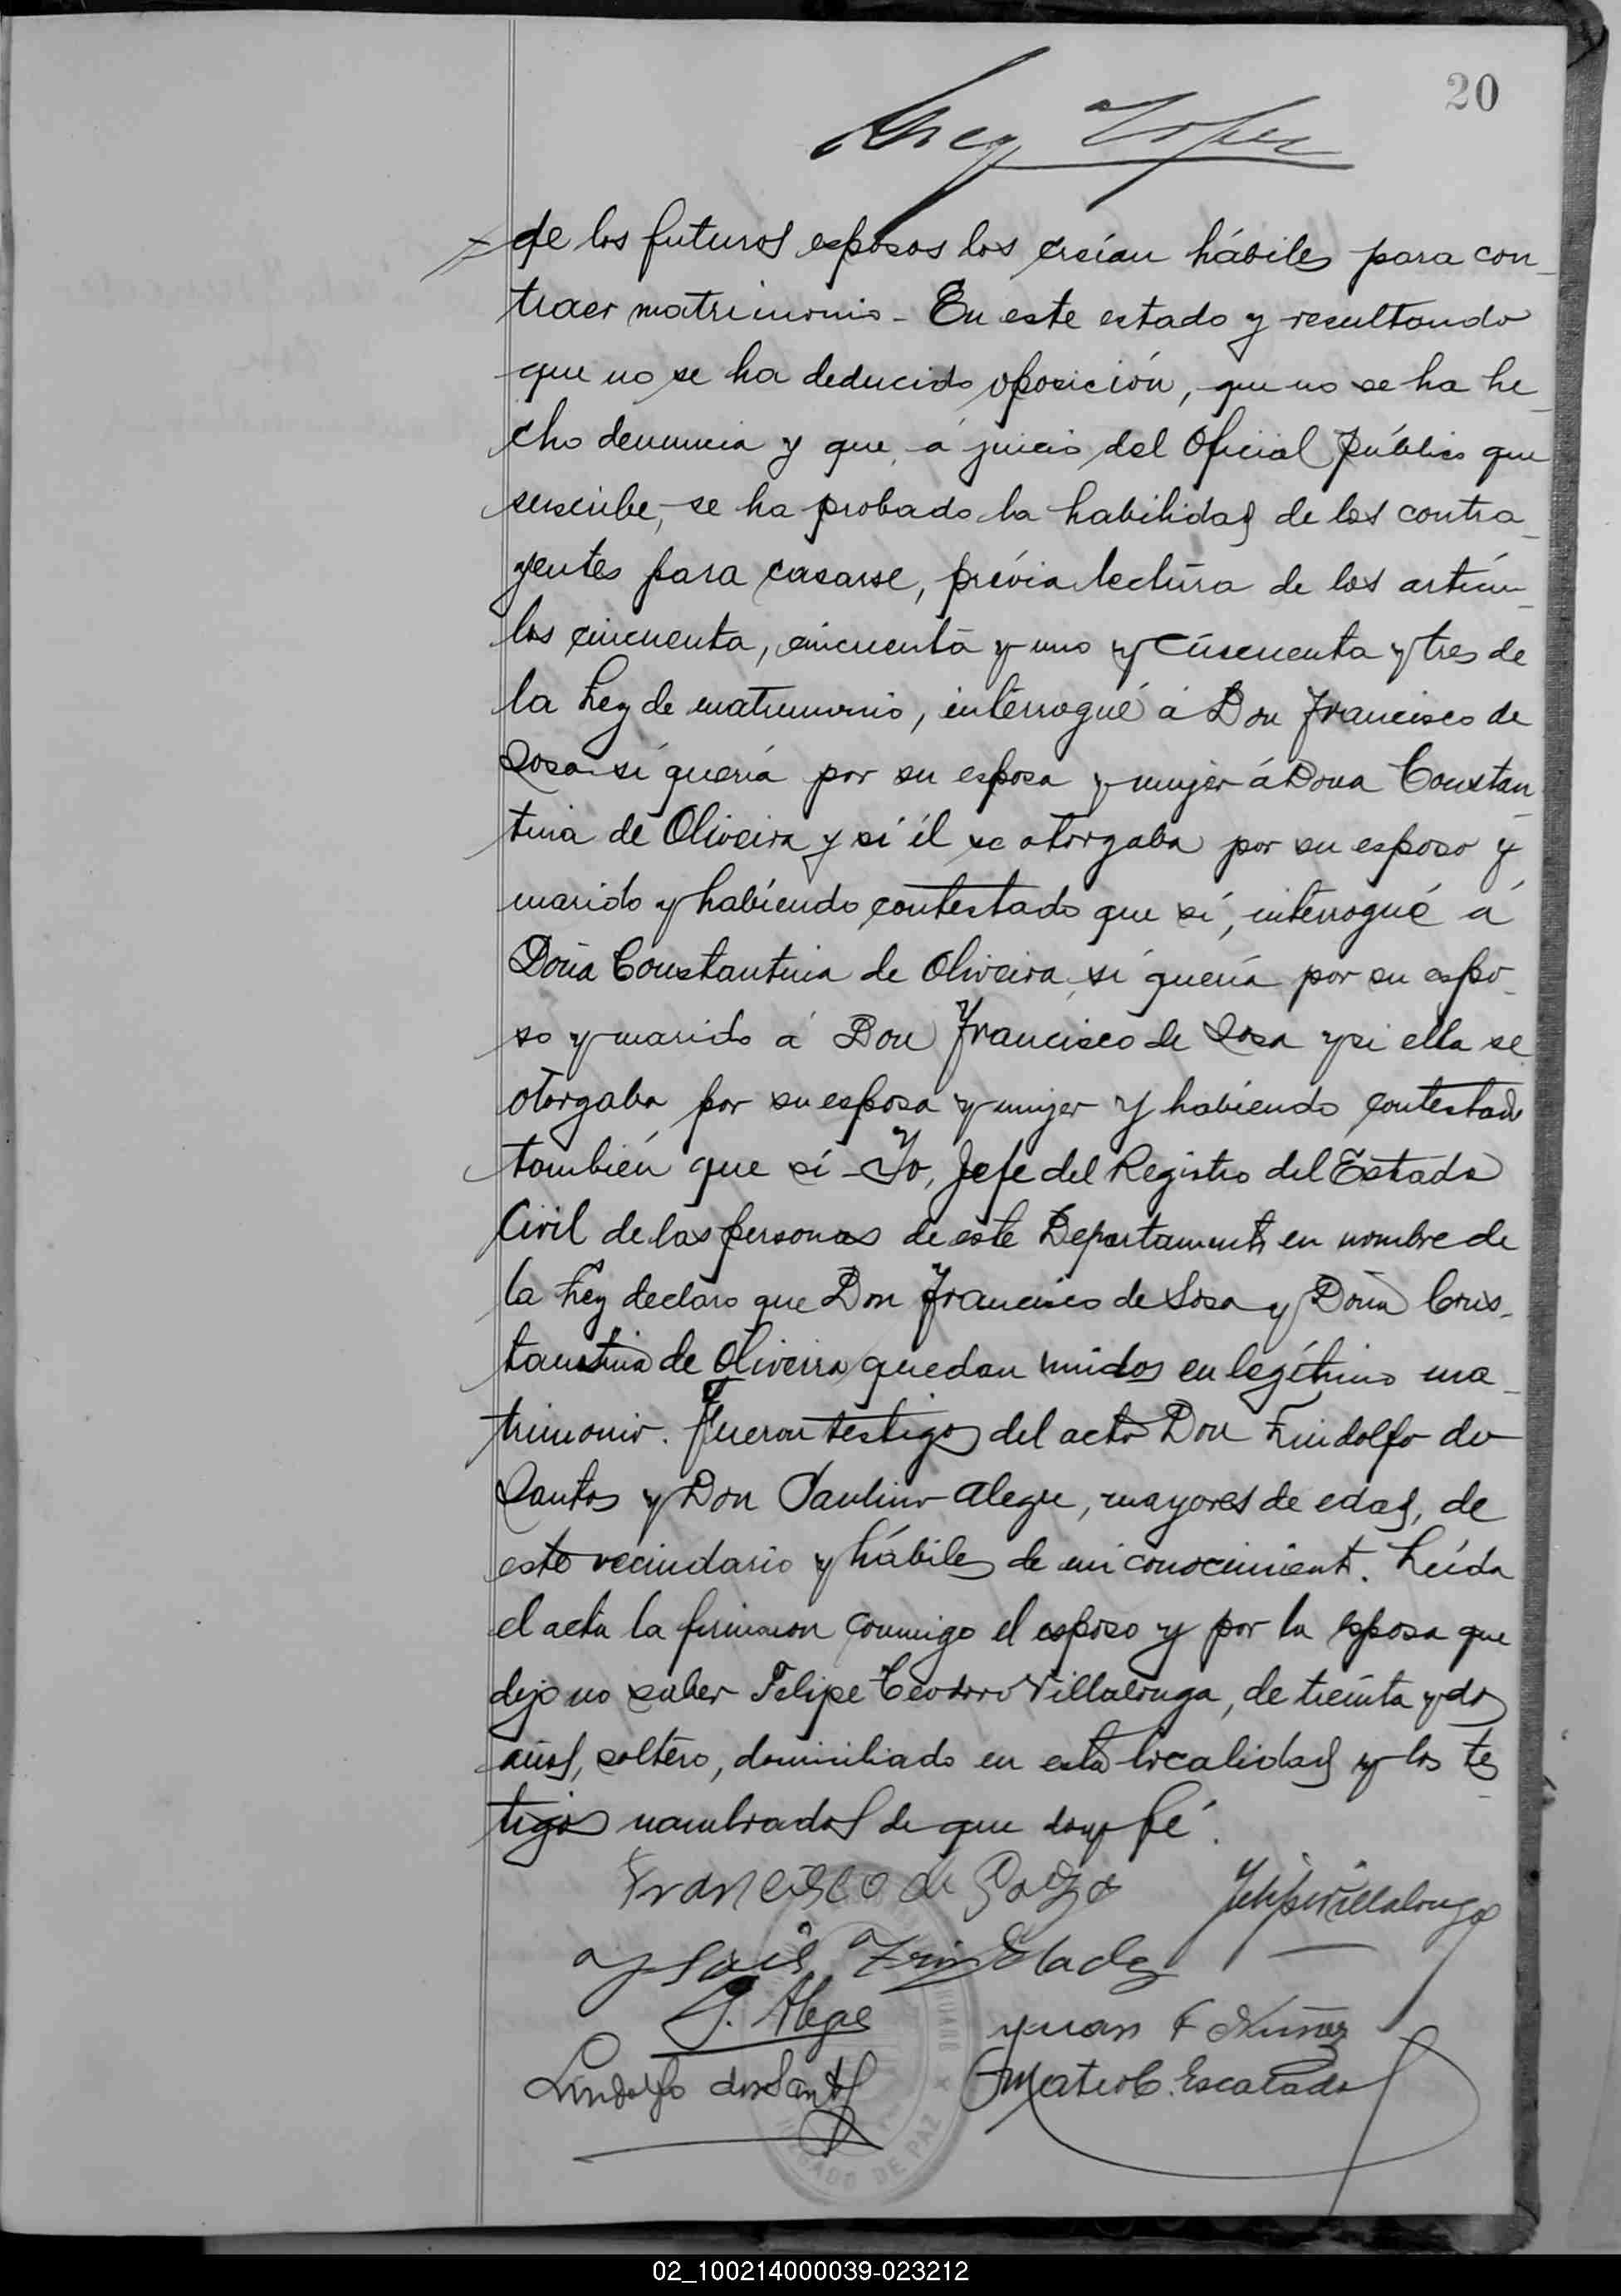 20
de los futuros esposos los creían hábiles para con-
traer matrimonio - En este estado y resultando
que no se ha deducido oposición, que no se ha he-
cho denuncia y que, á juicio del Oficial público que
suscribe, se ha probado la habilidad de los contra-
yentes para casarse, prévia lectura de los artícu-
los cincuenta, cincuenta y uno y cincuenta y tres de
la Ley de matrimonio, interrogué á Don Francisco de
Sosa si quería por su esposa y mujer á Doña Constan-
tina de Oliveira y si él se otorgaba por su esposo y
marido y habiendo contestado que sí, interrogué á
Doña Constantina de Oliveira, si quería por su espo-
so y marido á Don Francisco de Sosa y si ella se
otorgaba por su esposa y mujer y habiendo contestado
también que sí - Yo, Jefe del Registro del Estado
Civil de las personas de este Departamento en nombre de
la Ley declaro que Don Francisco de Sosa y Doña Cons-
tantina de Oliveira quedan unidos en legítimo ma-
trimonio. Fueron testigos del acto Don Lindolfo do
Santos y Don Paulino Alegre, mayores de edad, de
este vecindario y hábiles de mi conocimiento. Leída
el acta la firmaron conmigo el esposo y por la esposa que
dijo no saber Felipe Teodoro Villalonga, de treinta y dos
años, soltero, domiciliado en esta localidad y los tes-
tigos nombrados de que doy fé.
Francisco de Felipe Villalonga
Trindade
P. Alegre Juan F Nuñez
Lindolfo dos Santos Mateo C. Escalada
JUZGADO DE PAZ
02_100214000039-023212